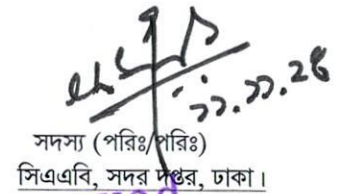 ১১.১১.২৪
সদস্য (পরিঃ/পরিঃ)
সিএএবি, সদর দপ্তর, ঢাকা।